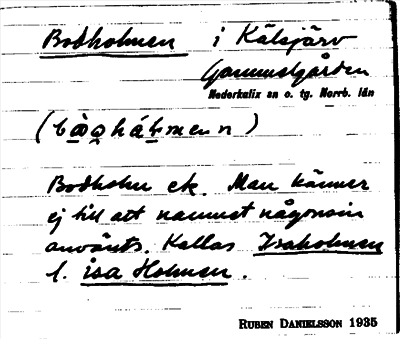 Bodholmen i Kälsjärv
Gammelgården
Nederkalix sn o. tg. Norrb. län
Bodholm etc. Man känner
ej till att namnet någonsin
använts. Kallas Isaholmen
l. isa Holmen.
RUBEN DANIELSSON 1935